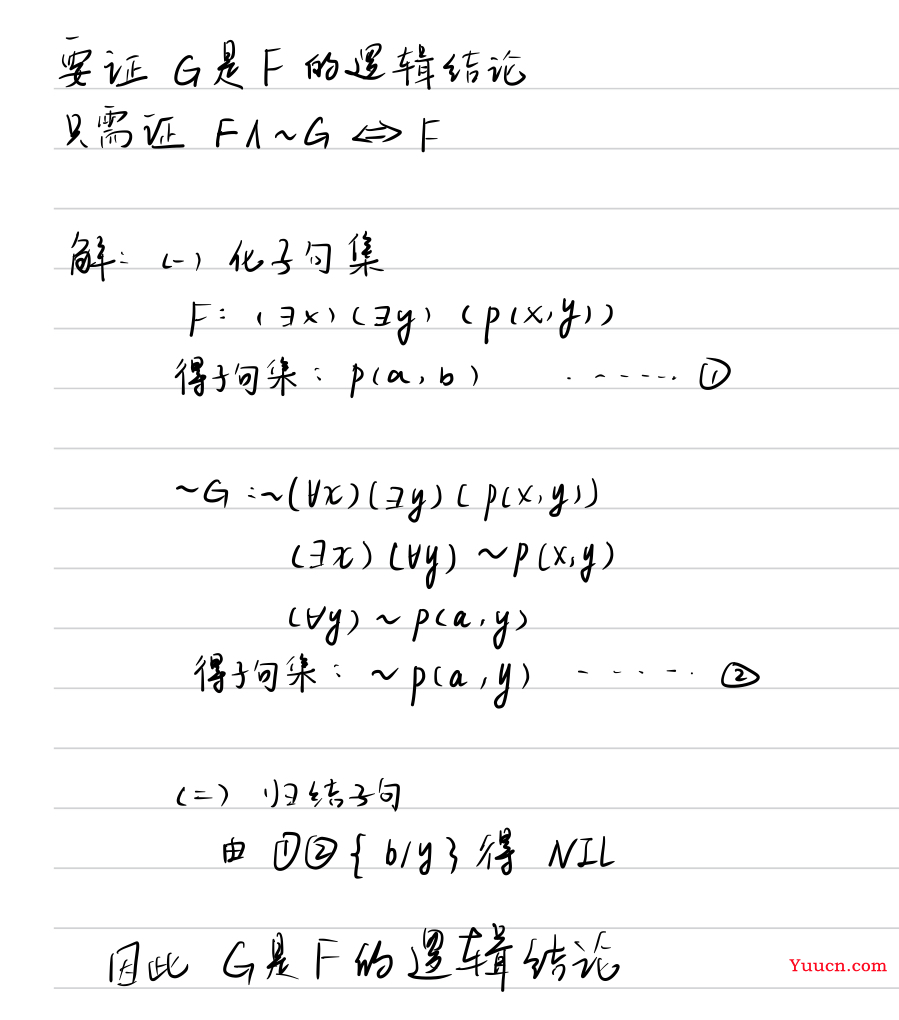 要证 G是F的逻辑结论
只需证 F∧~G ⇔ F
解: (一) 化子句集
F: (∃x)(∃y)(p(x,y))
得子句集: p(a,b) ······ ①
~G :~(∀x)(∃y)(p(x,y))
(∃x)(∀y) ~p(x,y)
(∀y) ~p(a,y)
得子句集: ~p(a,y) ······ ②
(二) 归结子句
由 ①② {b/y} 得 NIL
因此 G是F的逻辑结论
Yuucn.com